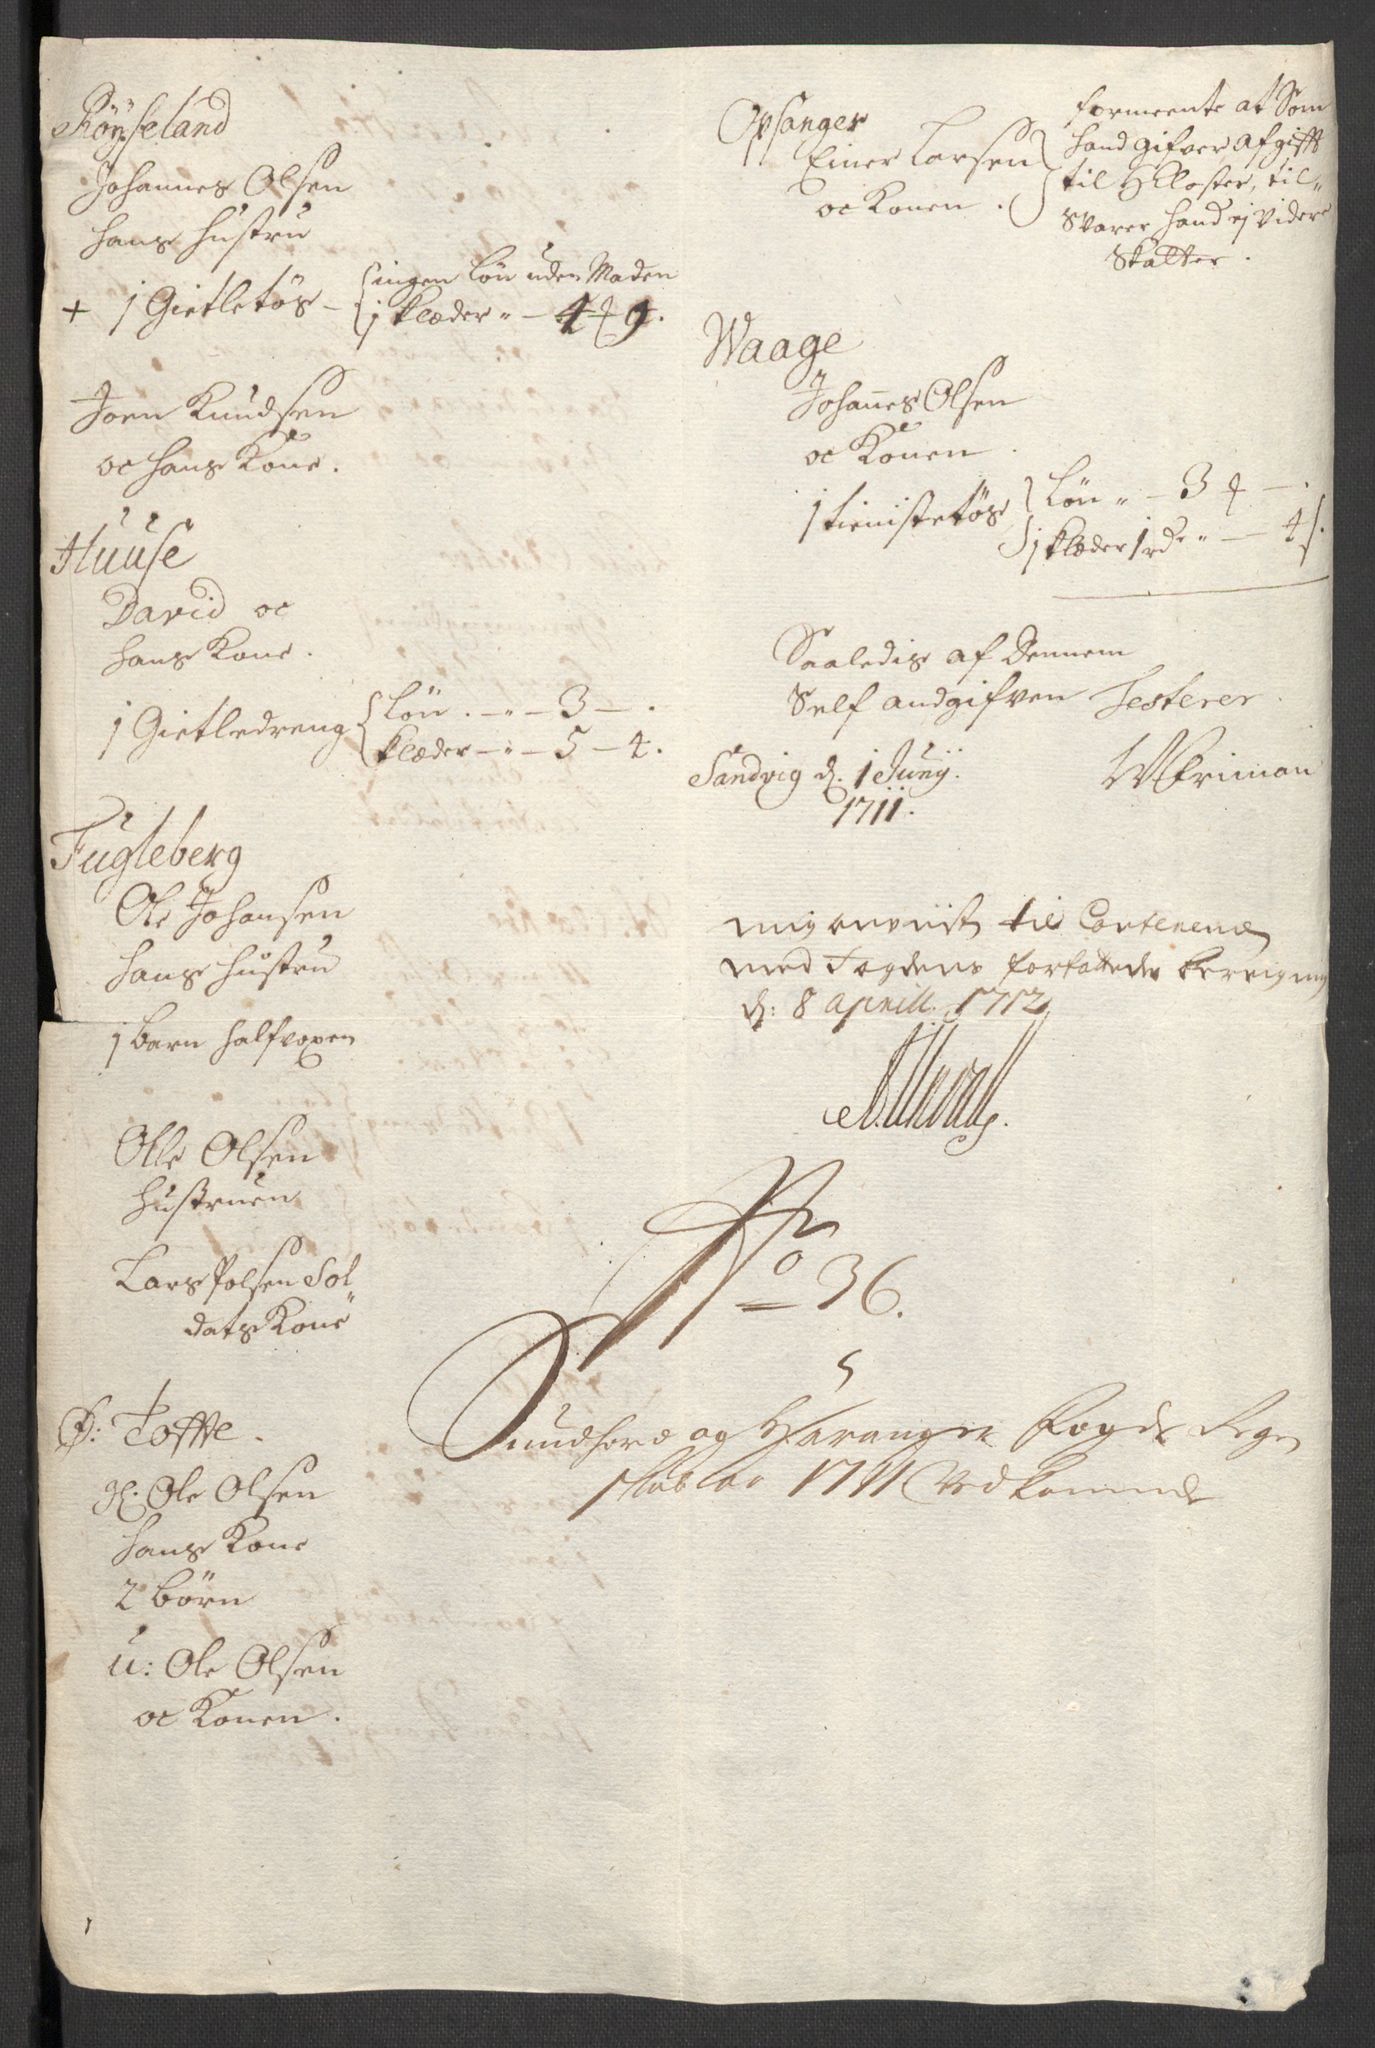 Röyseland
Johannes Olsen
hans hustru
+ 1 Gietletös – ingen lön uden Maden
j klæder „ – 4 ʄ 9.
Joen Knudsen
oc hans Kone.
Huuse
David oc
hans Kone.
1 Gietledreng Lön . – „ – 3 – .
klæder – „ – 5 – 4.
Fugleberg
Ole Johansen
hans hustru
1 barn halfvoxen
Olle Olsen
hustruen
Lars Polsen Sol„
dats Kone
Toffte.
Ole Olsen
hans Kone
2 börn
u: Ole Olsen
oc Konen.
Opsanger
Einer Larsen
oc Konen .
formeente at Som
hand gifver afgifft
til Kloster, til„
Svarer hand ej videre
Skatter.
Waage
Johanes Olsen
oc Konen .
1 tienistetös Lön „ – 3 ʄ – .
j klæder 1 rd „ – 4 s.
Saaledis af Dennem
Self andgifven Testerer
Sandvig d. 1 Junij.
1711.
WFriman
mig anviist til
med Fogdens forfattede
d: 8 Aprill. 1712
No 36.
5
Sundhord og Hardanger Fogderie Regen
skab for 1711 Vedkommende